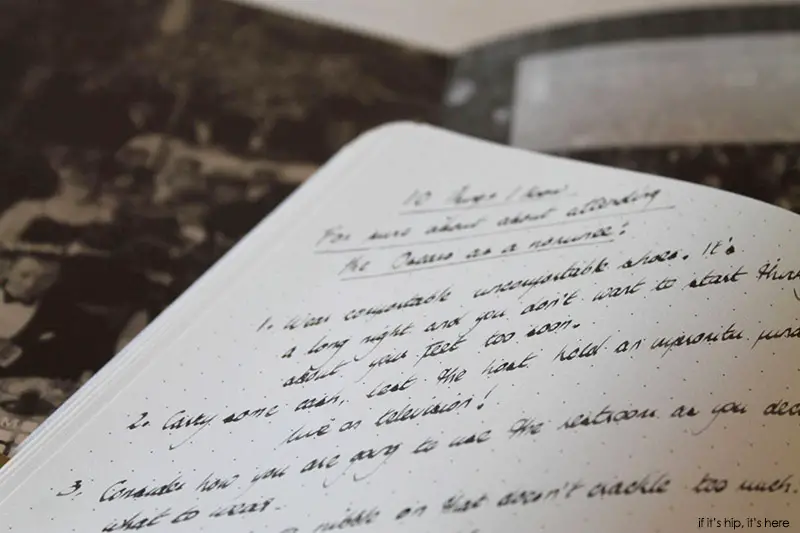 10 Things I know
For sure about about attending
the Oscars as a nominee:
1. Wear comfortable uncomfortable shoes. It's
a long night and you don't want to start
about your feet too soon.
2. Carry some cash, lest the host hold an impromtu
live on television!
3. Consider how you are going to use the restroom as you
what to wear.
nibble on that doesn't crackle too much.
if it's hip, it's here